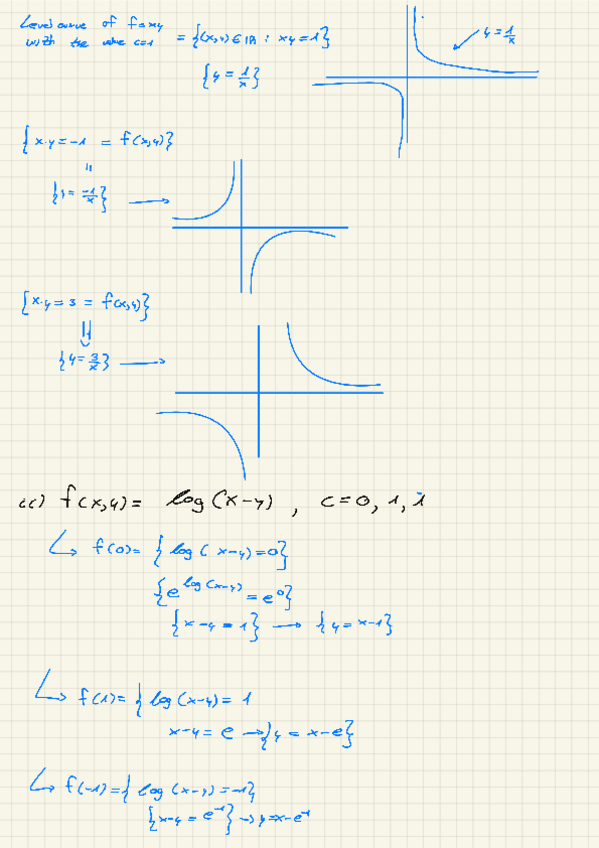 Level curve of f=xy
with the value c=1 = {(x,y) ∈ IR : xy = 1}
{y = 1/x}
y = 1/x
{x·y = -1 = f(x,y)}
"
{y = -1/x}
{x·y = 3 = f(x,y)}
{y = 3/x}
cc) f(x,y) = log(x-y) , c = 0, 1, 1
f(0) = { log(x-y) = 0}
{e^log(x-y) = e^0}
{x-y = 1} → {y = x-1}
f(1) = { log(x-y) = 1
x-y = e → {y = x-e}
f(-1) = { log(x-y) = -1}
{x-y = e^-1} → y = x-e^-1